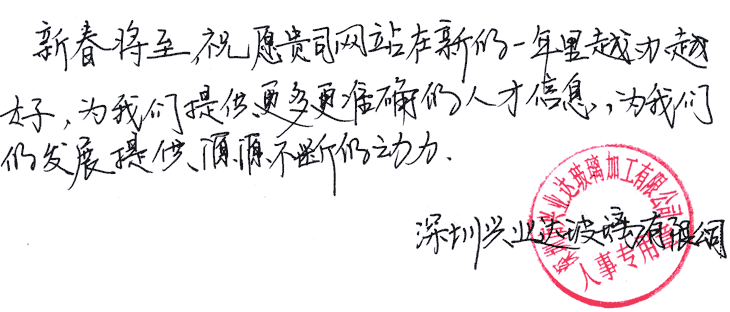 新春将至,祝愿贵司网站在新的一年里越办越
好,为我们提供更多更准确的人才信息,为我们
的发展提供源源不断的动力.
深圳兴业达玻璃有限公司
兴业达玻璃加工有限公司
人事专用章